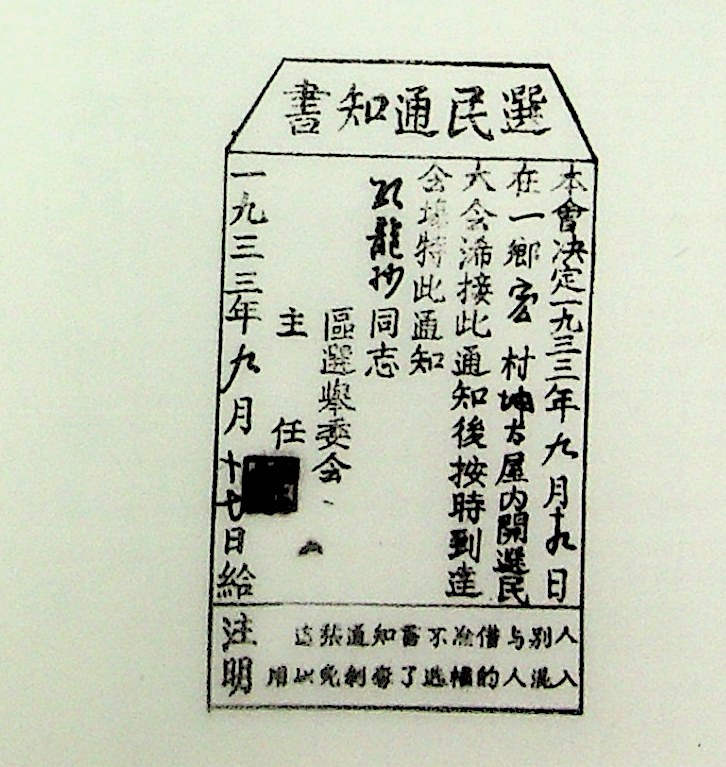 選民通知書
本會決定一九三三年九月十九日
在一鄉宏村坤古屋内開選民
大会浠接此通知後按時到達
会塲特此通知
龍抄同志
區選舉委会
主任
一九三三年九月十七日給
注明
这张通知畨不准借与别人
用以免剝奪了选權的人混入